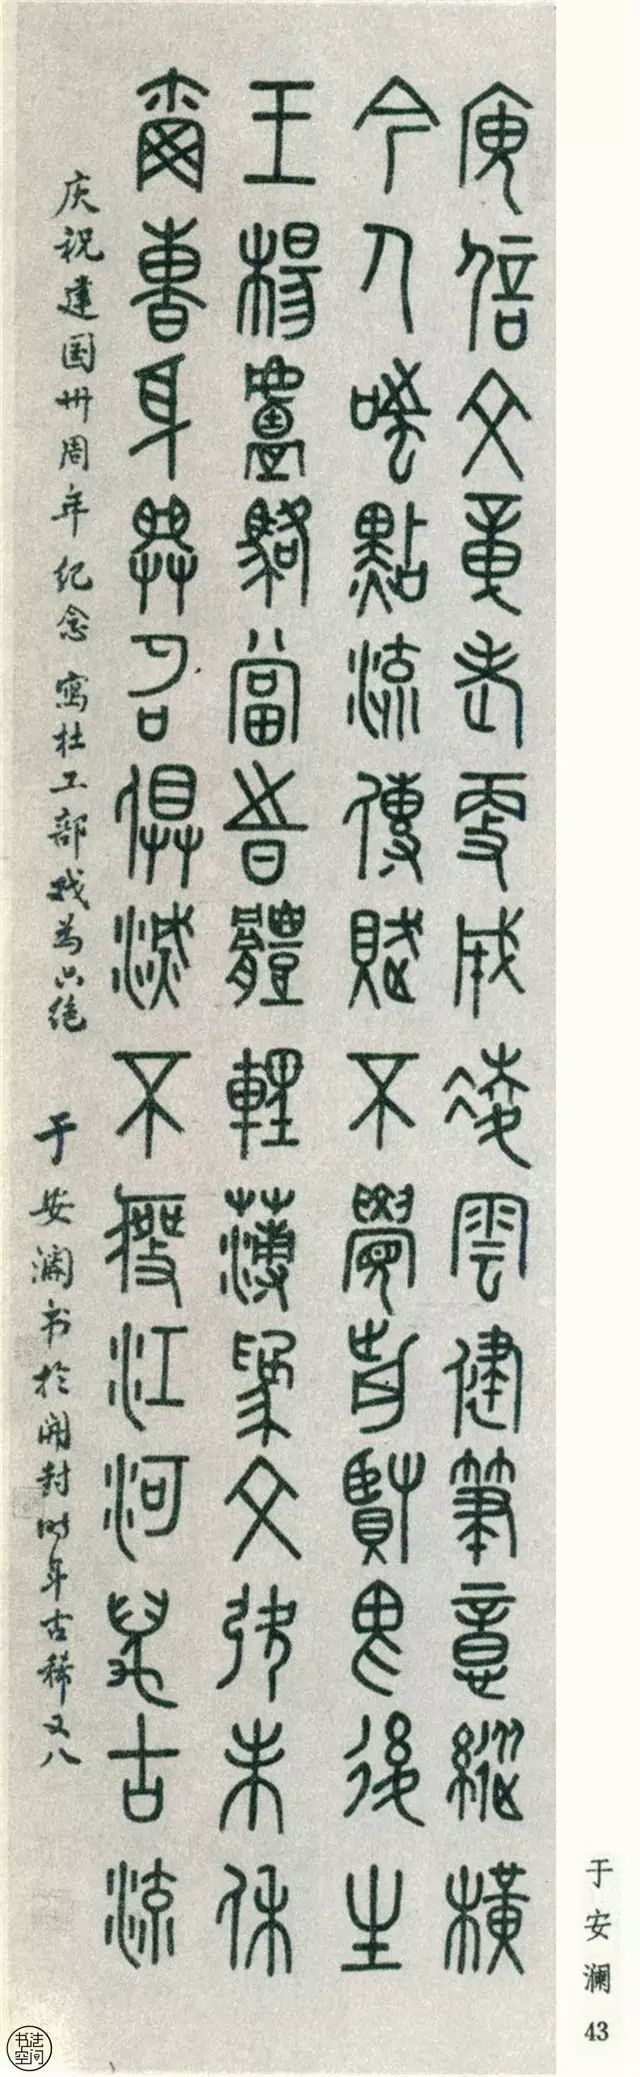 庾信文章老更成凌雲健筆意縱橫
今人嗤點流傳賦不覺前賢畏後生
王楊盧駱當時體輕薄為文哂未休
爾曹身與名俱滅不廢江河萬古流
庆祝建国卅周年纪念 寫杜工部戏为六绝 于安澜书於開封时年古稀又八
于安澜 43
书法空间